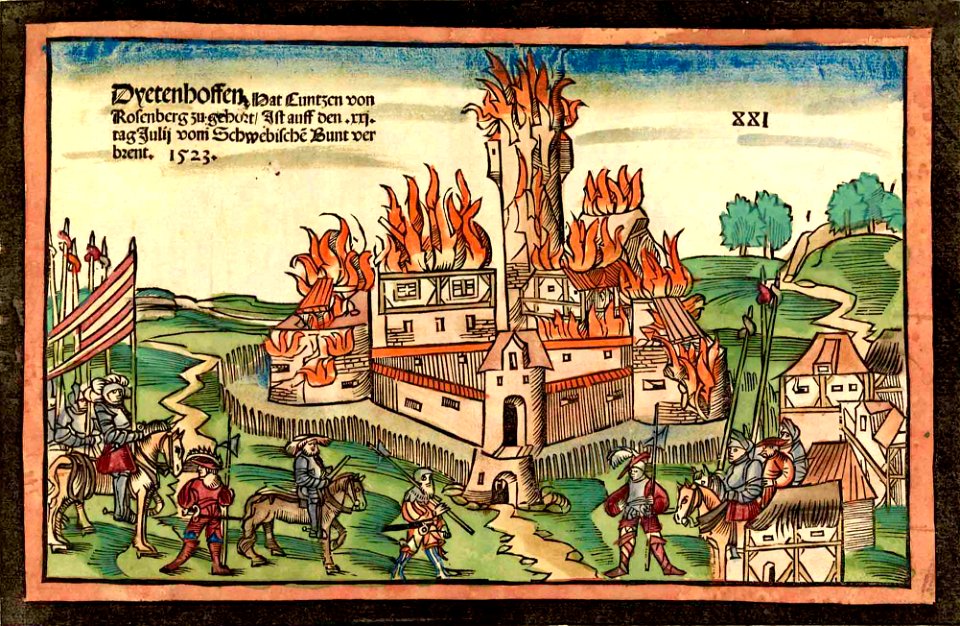 Dyetenhoffen, Hat Cuntzen von
Rosenberg zu gehort/ Ist auff den .xxj.
tag Julij vom Schwebischē Bunt ver
brent. 1523.
XXI